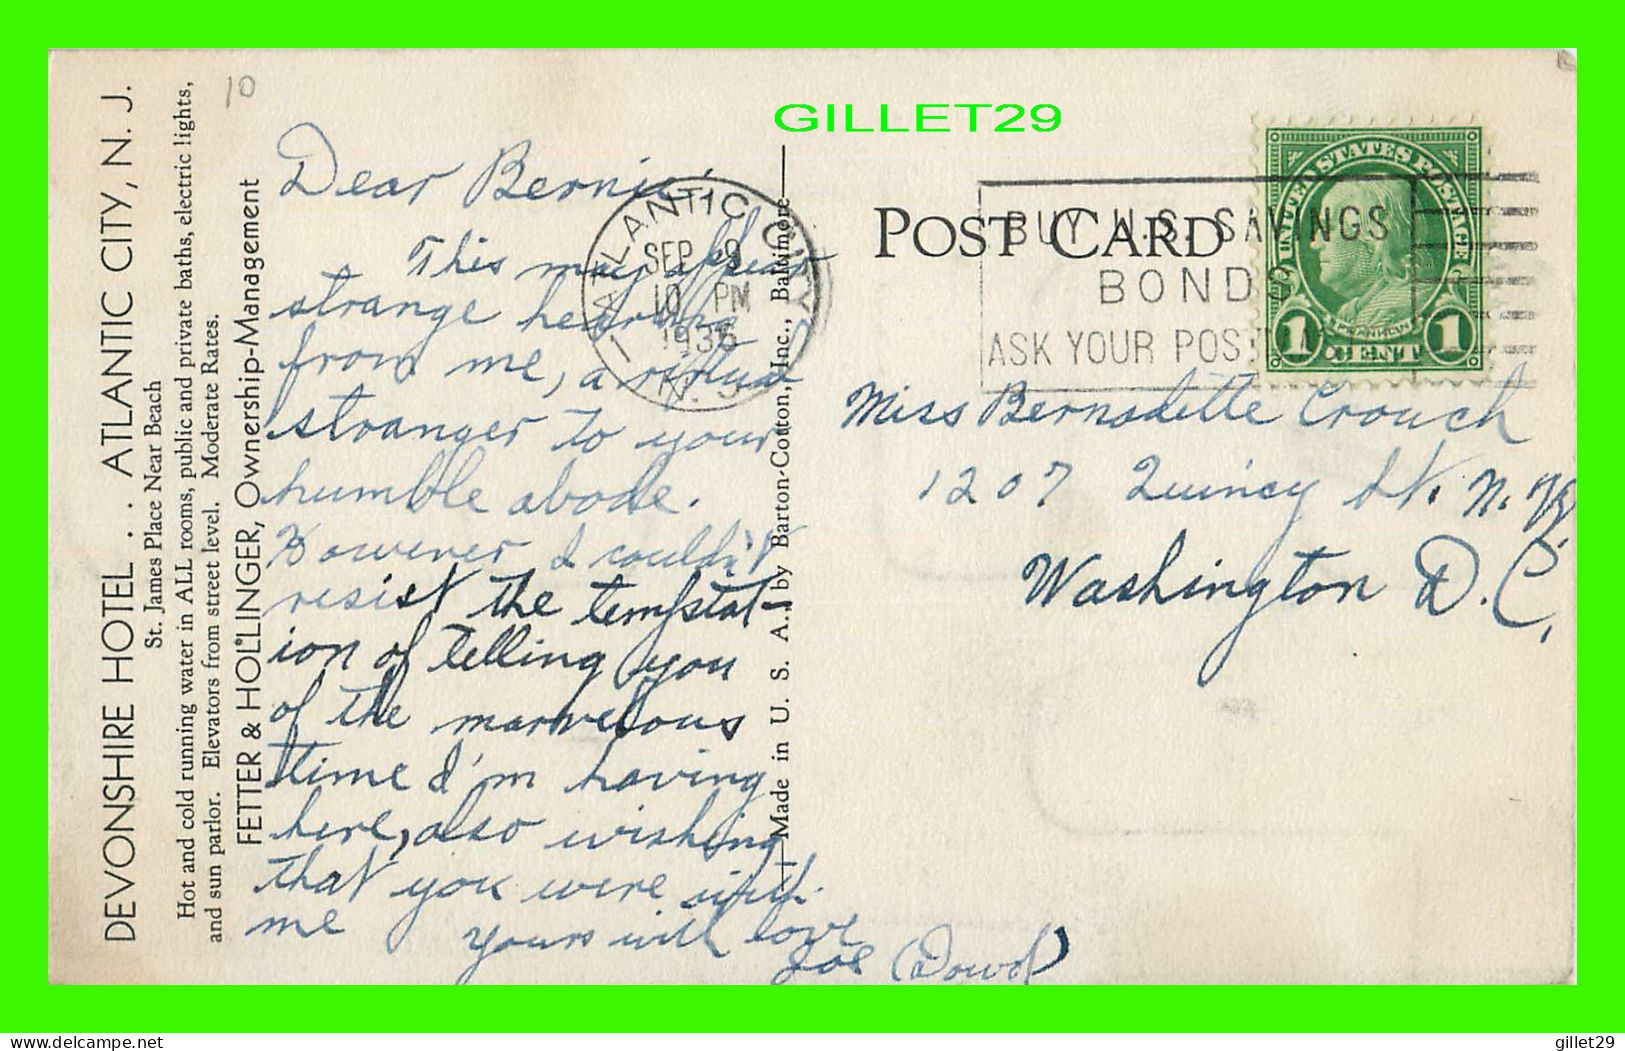 GILLET29
10
DEVONSHIRE HOTEL . . ATLANTIC CITY, N. J.
St. James Place Near Beach
Hot and cold running water in ALL rooms, public and private baths, electric lights,
and sun parlor. Elevators from street level. Moderate Rates.
FETTER & HOLLINGER, Ownership-Management
Dear Bernie,
This may appear
strange hearing
from me, a
stranger to your
humble abode.
However I couldn't
resist the temptat-
ion of telling you
of the marvelous
time I'm having
here, also wishing
that you were with
me
yours with love
Joe (Dowd)
Made in U. S. A. by Barton-Cotton, Inc., Baltimore
ATLANTIC CITY
N.J.
SEP 9
10 PM
1936
POST CARD
BUY U.S. SAVINGS
BONDS
ASK YOUR POST
UNITED STATES POSTAGE
FRANKLIN
1 CENT 1
Miss Bernadette Crouch
1207 Quincy St. N.W.
Washington D.C.
Delcampe.net
gillet29